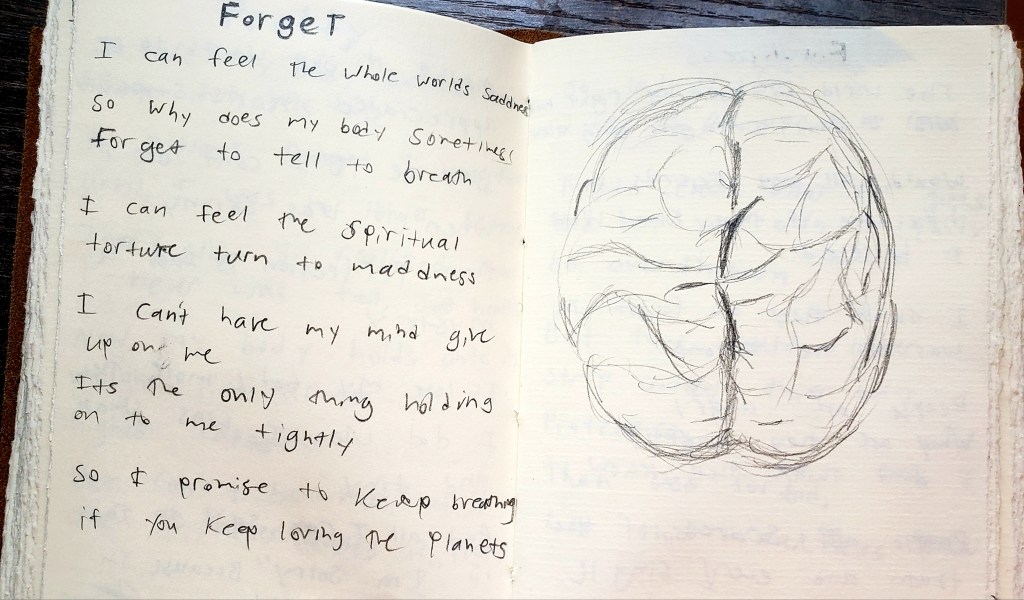 ForgeT
I can feel the whole worlds Saddness
So why does my body Sometimes
Forget to tell to breath
I can feel the Spiritual
torture turn to maddness
I Can't have my mind give
up on me
Its the only thing holding
on to me tightly
So I promise to Keep breathing
if You Keep loving The Planets